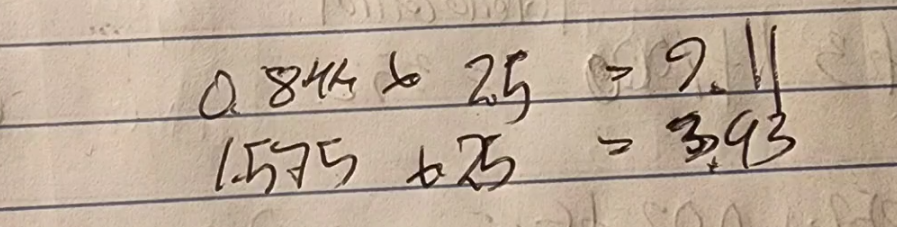 0.844 x 2.5 = 2.11
1.575 x 2.5 = 3.93